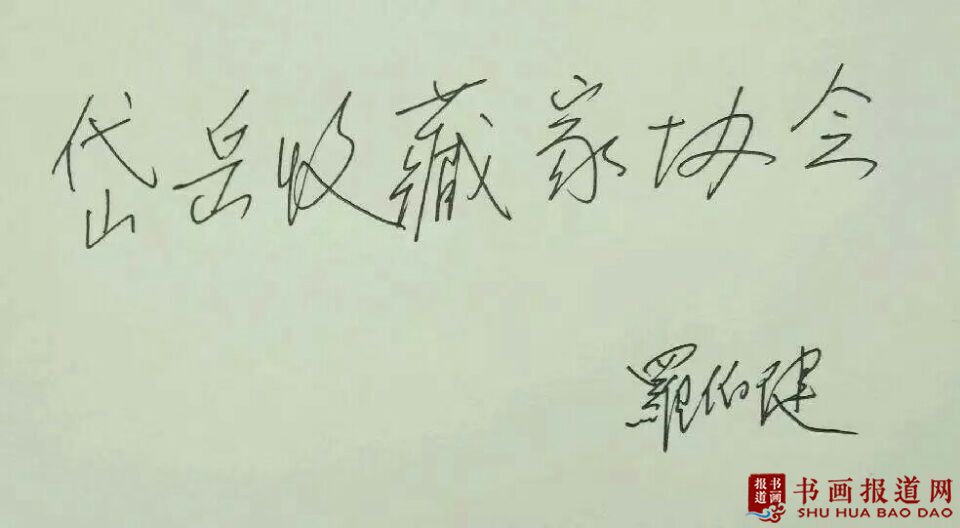 岱岳收藏家协会
羅伯健
书画报道
书画报道网
SHU HUA BAO DAO